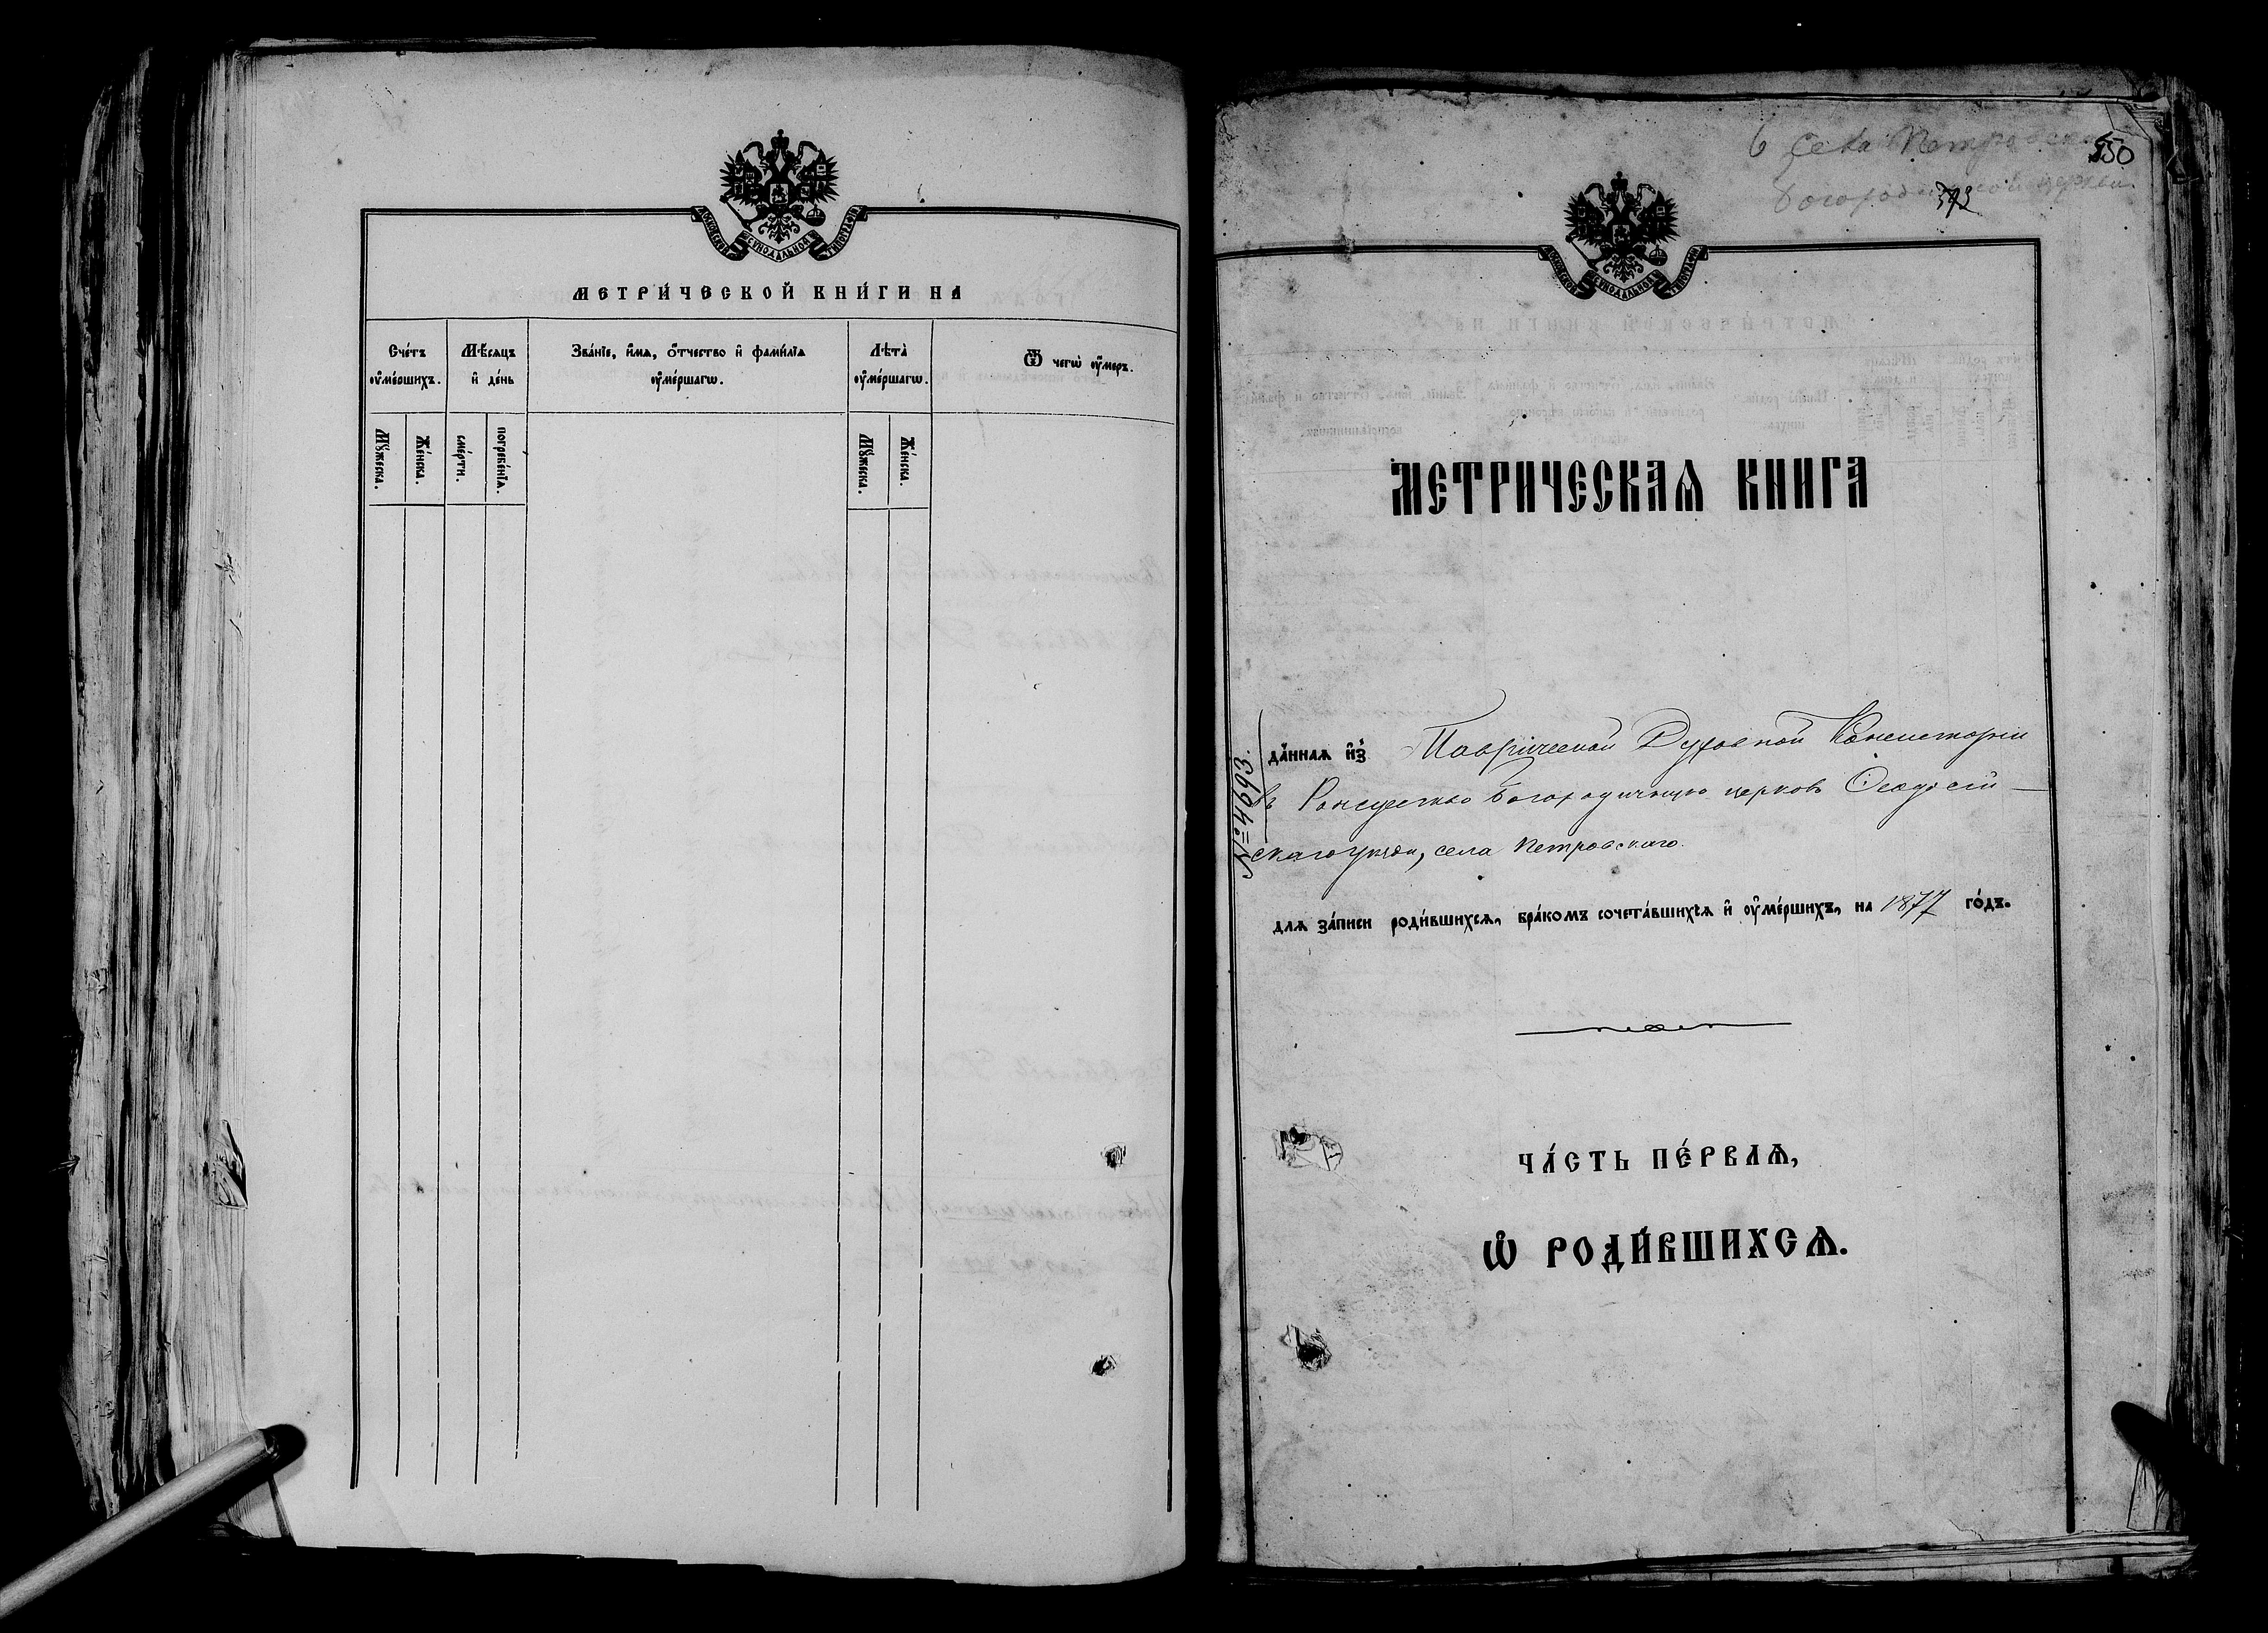 МОСКОВСКОЙ СѴНОДАЛЬНОЙ ТИПОГРАФІИ
МЕТРИ́ЧЕСКОЙ КНИ́ГИ НА
Сче́тъ ᲂу҆ме́ршихъ.
Мѣ́сѧцъ и҆ де́нь
Зва́нїе, и҆́мѧ, ѻ҆́тчество и҆ фамі́лїѧ ᲂу҆ме́ршагѡ.
Лѣ́та ᲂу҆ме́ршагѡ.
Ѿ чегѡ̀ ᲂу҆́меръ.
Мꙋ́жеска.
Же́нска.
сме́рти.
погребе́нїѧ.
Мꙋ́жеска.
Же́нска.
6 Села Петровска
550
Богородичной церкви
373
МОСКОВСКОЙ СѴНОДАЛЬНОЙ ТИПОГРАФІИ
МЕТРИЧЕСКАѦ КНИГА
№ 4693.
да́ннаѧ и҆з̾ Таврической Духовной Консисторіи
въ Рождество Богородичную церковь Ѳеодосій-
скаго уѣзда, села Петровскаго.
длѧ за́писи роди́вшихсѧ, бра́комъ сочета́вшихсѧ и҆ ᲂу҆ме́ршихъ, на 1877 го́дъ.
ЧА́СТЬ ПЕ́РВАѦ,
Ѡ҆ РОДИ́ВШИХСѦ.